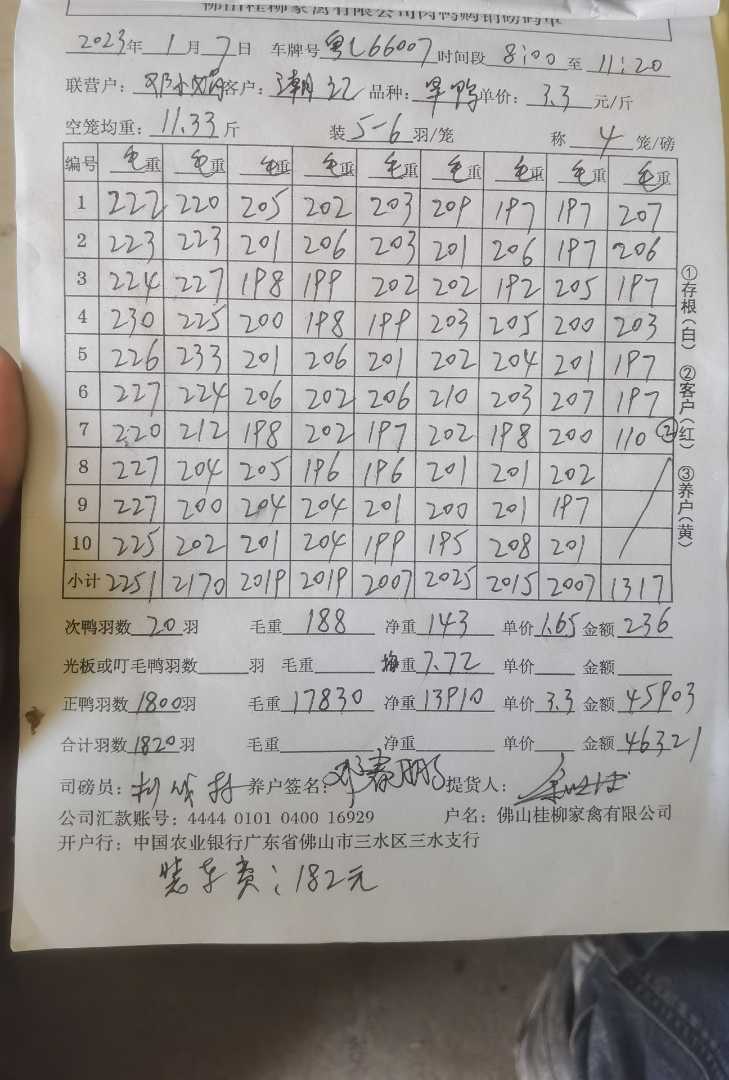 佛山桂柳家禽有限公司肉鸭购销磅码单
2023年 1月 7日 车牌号 粤L66007 时间段 8:00 至 11:20
联营户: 客户: 潮记 品种: 旱鸭 单价: 3.3 元/斤
空笼均重: 11.33 斤 装 5-6 羽/笼 称 4 笼/磅
编号 毛重 毛重 毛重 毛重 毛重 毛重 毛重 毛重 毛重
1 222 220 205 202 203 209 197 197 207
2 223 223 201 206 203 201 206 197 206
3 224 227 198 199 202 202 192 205 197
4 230 225 200 198 199 203 205 200 203
5 226 233 201 206 201 202 204 201 197
6 227 224 206 202 206 210 203 207 197
7 220 212 198 202 197 202 198 200 110 ②
8 227 204 205 196 196 201 201 202
9 227 200 204 204 201 200 201 197
10 225 202 201 204 199 195 208 201
小计 2251 2170 2019 2019 2007 2025 2015 2007 1317
①存根(白) ②客户(红) ③养户(黄)
次鸭羽数 20 羽 毛重 188 净重 143 单价 1.65 金额 236
光板或叮毛鸭羽数 羽 毛重 均重 7.72 单价 金额
正鸭羽数 1800 羽 毛重 17830 净重 13910 单价 3.3 金额 45903
合计羽数 1820 羽 毛重 净重 单价 金额 46321
司磅员: 养户签名: 邓春鹏 提货人:
公司汇款账号: 4444 0101 0400 16929 户名: 佛山桂柳家禽有限公司
开户行: 中国农业银行广东省佛山市三水区三水支行
装车费: 182元